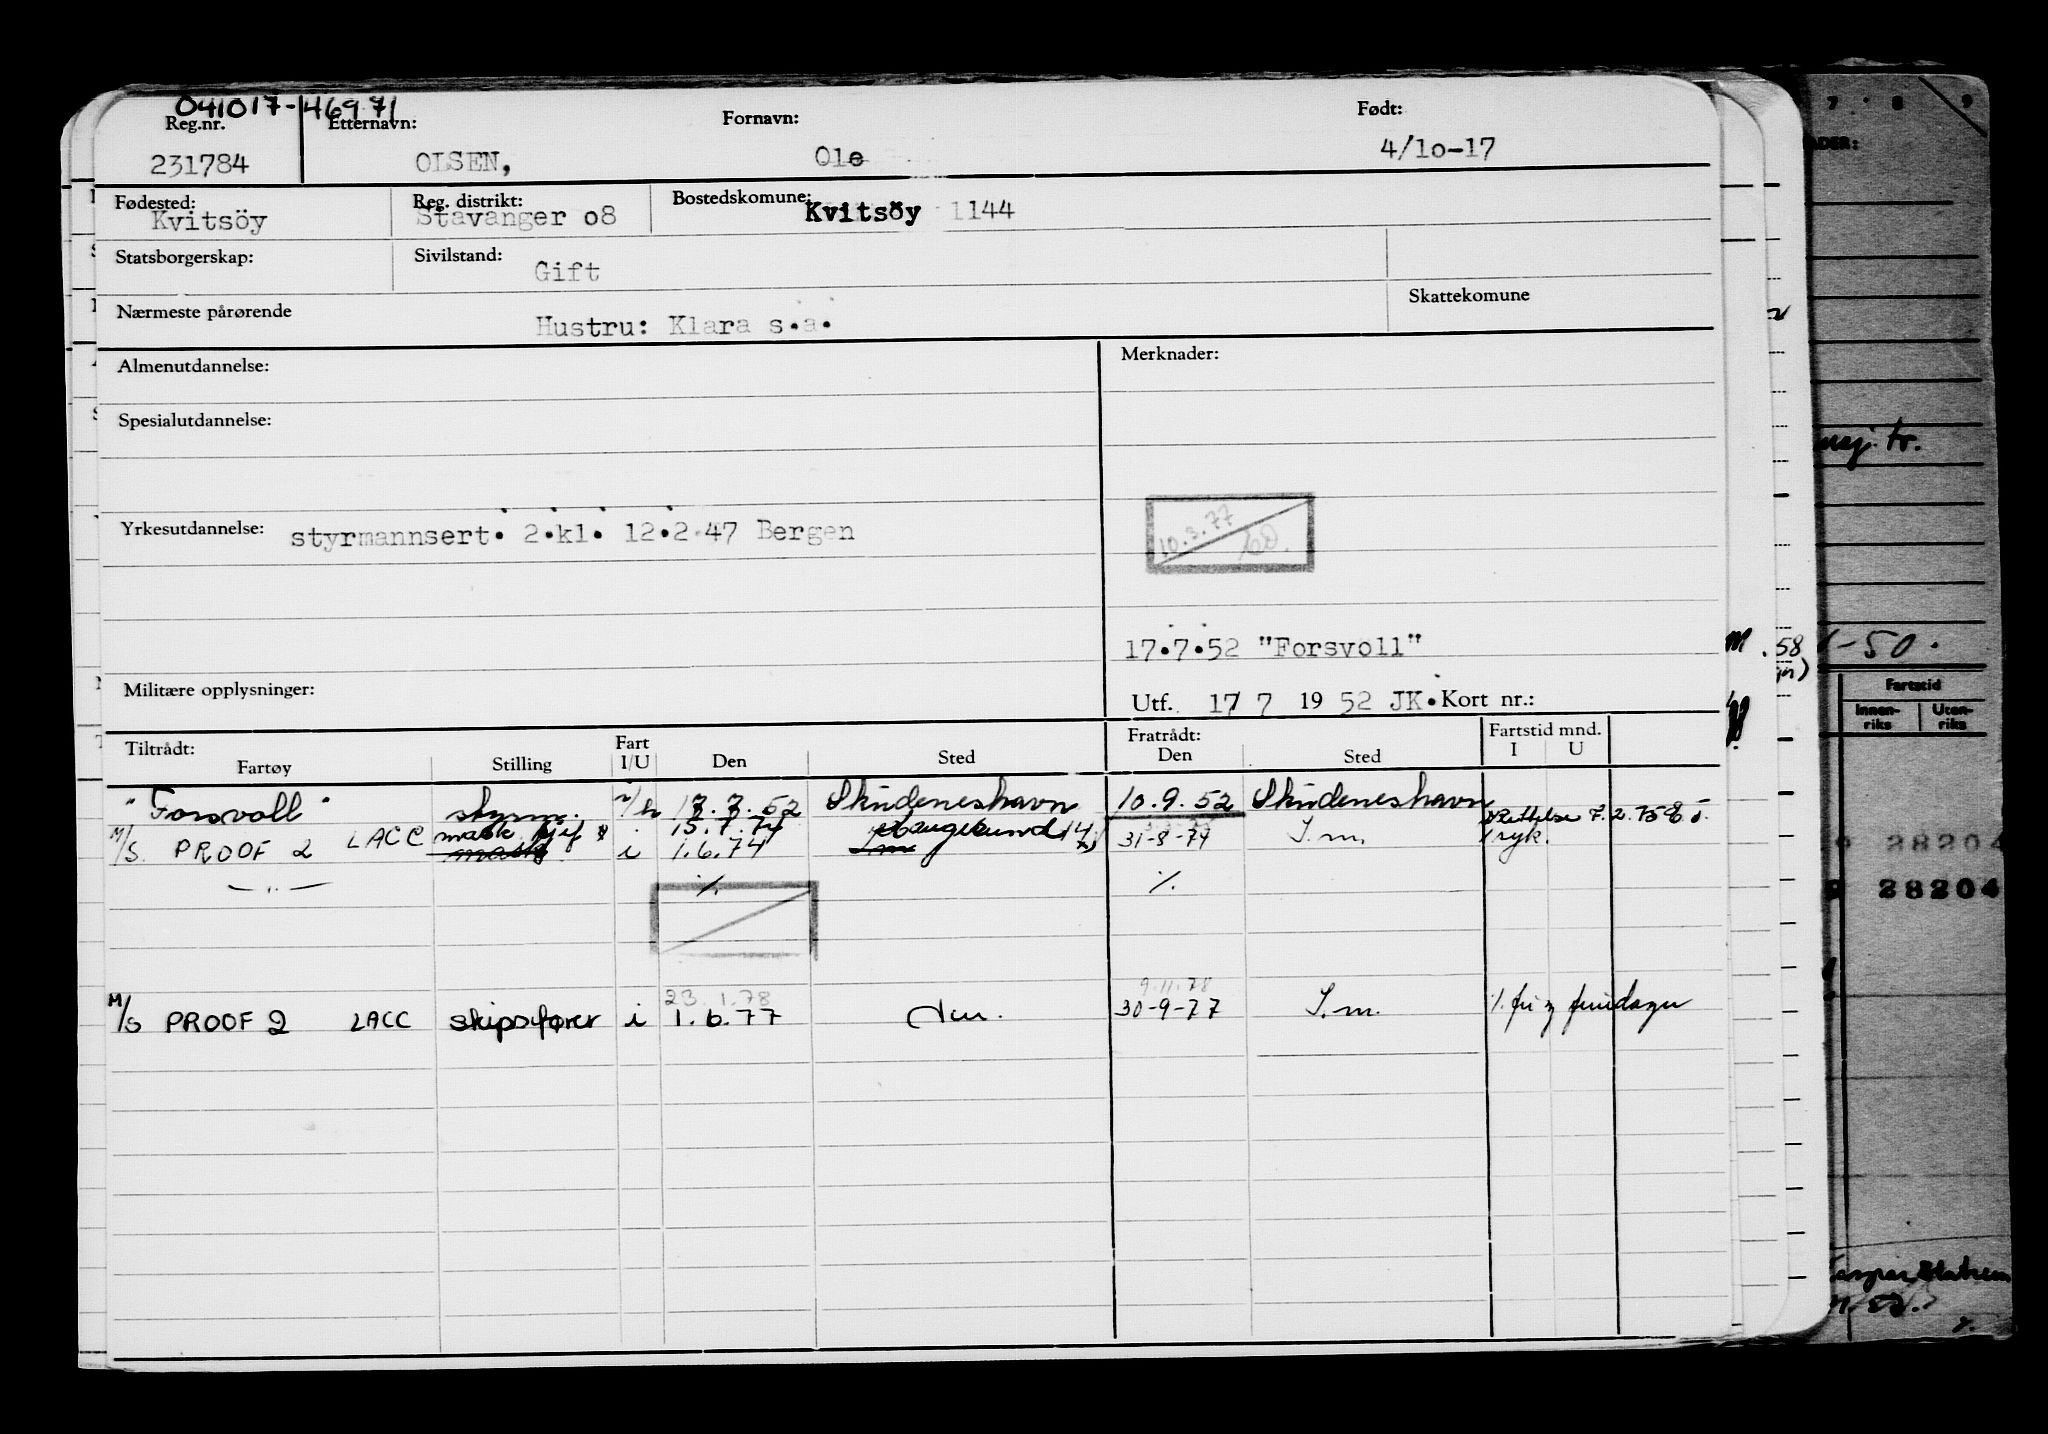 041017-46971
Reg.nr. Etternavn: Fornavn: Født:
231784 OLSEN, Ole 4/1o-17
Fødested: Reg. distrikt: Bostedskomune:
Kvitsöy Stavanger o8 Kvitsöy 1144
Statsborgerskap: Sivilstand:
Gift
Nærmeste pårørende Skattekomune
Hustru: Klara s.a.
Almenutdannelse: Merknader:
Spesialutdannelse:
10.3.77
Yrkesutdannelse: styrmannsert. 2.kl. 12.2.47 Bergen
17.7.52 "Forsvoll"
Militære opplysninger:
Utf. 17 7 1952 JK. Kort nr.:
Tiltrådt: Fart Fratrådt: Fartstid mnd.
Fartøy Stilling I/U Den Sted Den Sted I U
"Forsvoll" styrm. 17.7.52 Skudeneshavn 10.9.52 Skudeneshavn
mask. 15.7.74 Haugesund Rettelse 7.2.75
M/S PROOF 2 LACC i 1.6.74 31-8-74 S.m.
-"- % %
23.1.78 9.11.78
M/S PROOF 2 LACC skipsfører i 1.6.77 30-9-77 S.m.
7 8 9
tr.
58
-50.
Fartstid
Innen-riks Uten-riks
28204
28204